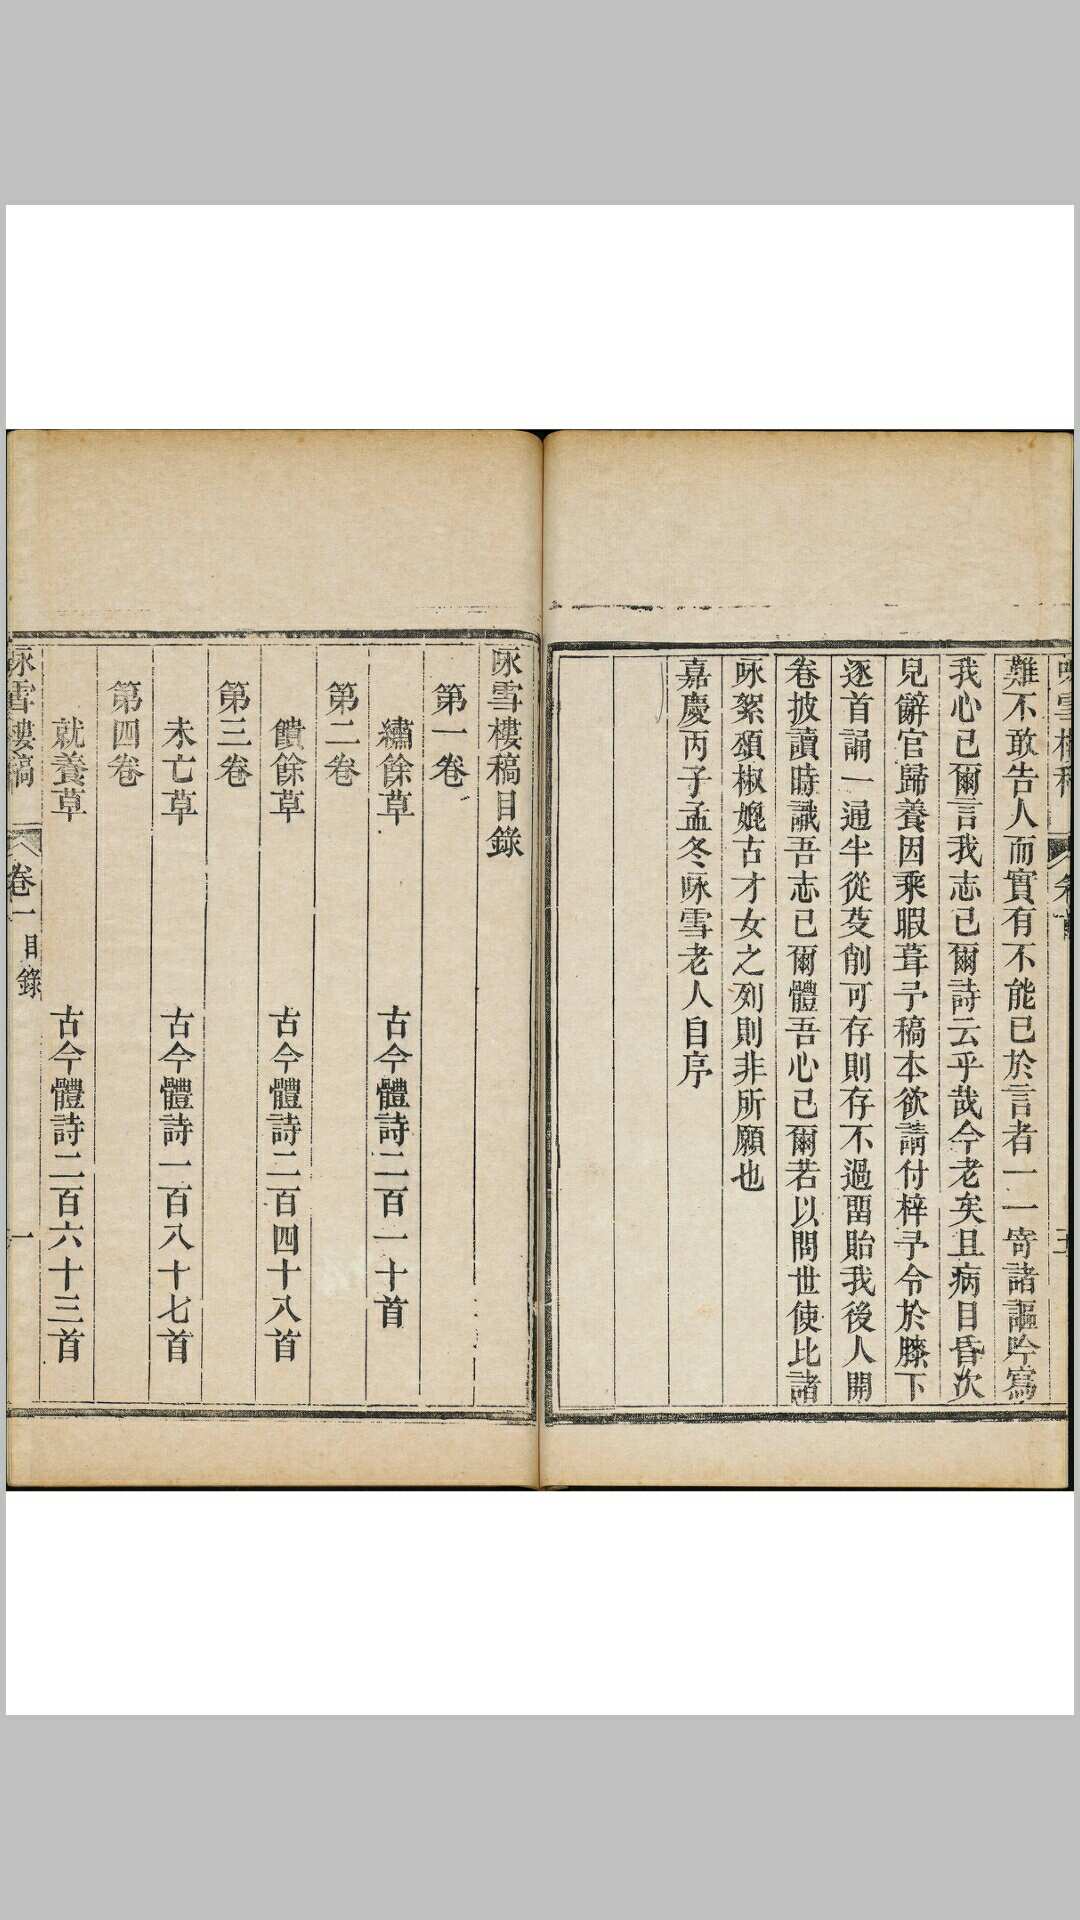 難不敢告人而實有不能已於言者一一寄諸謳吟寫
我心已爾言我志已爾詩云乎哉今老矣且病目昏次
兒辭官歸養因乘暇葺予稿本欲請付梓予令於膝下
逐首誦一通半從芟削可存則存不過畱貽我後人開
卷披讀時識吾志已爾體吾心已爾若以問世使比諸
咏絮頌椒媲古才女之列則非所願也
嘉慶丙子孟冬咏雪老人自序
咏雪樓稿目錄
第一卷
繡餘草 古今體詩二百一十首
第二卷
饋餘草 古今體詩二百四十八首
第三卷
未亡草 古今體詩一百八十七首
第四卷
就養草 古今體詩二百六十三首
咏雪樓稿 卷一目錄 一